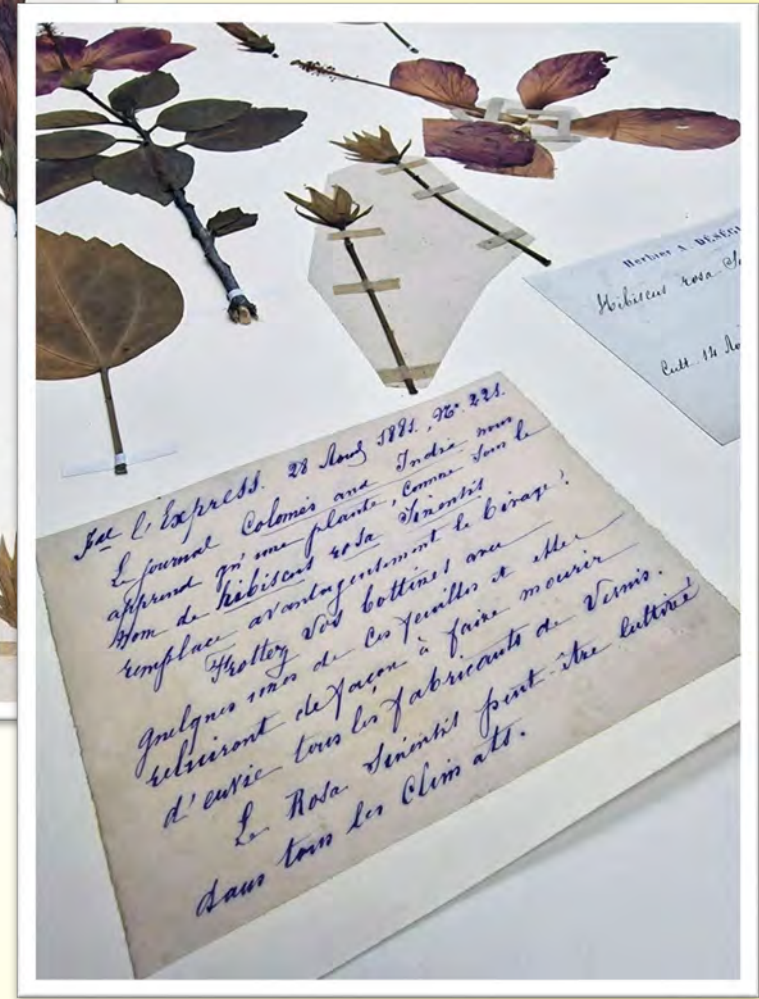 Herbier A. DÉSÉGL
Hibiscus rosa
Cult. 14
Jal l'Express. 28 Aout 1881., No. 221.
Le journal Colonies and India nous
apprend qu'une plante, connue sous le
nom de hibiscus rosa Sinensis
remplace avantageusement le Cirage!
Frottez vos bottines avec
quelques unes de ces feuilles et elles
reluiront de façon à faire mourir
d'envie tous les fabricants de Vernis.
Le Rosa Sinensis peut-être cultivé
dans tous les Climats.